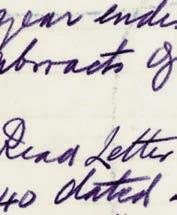 year ende
abstracts of
Read Letter
40 dated